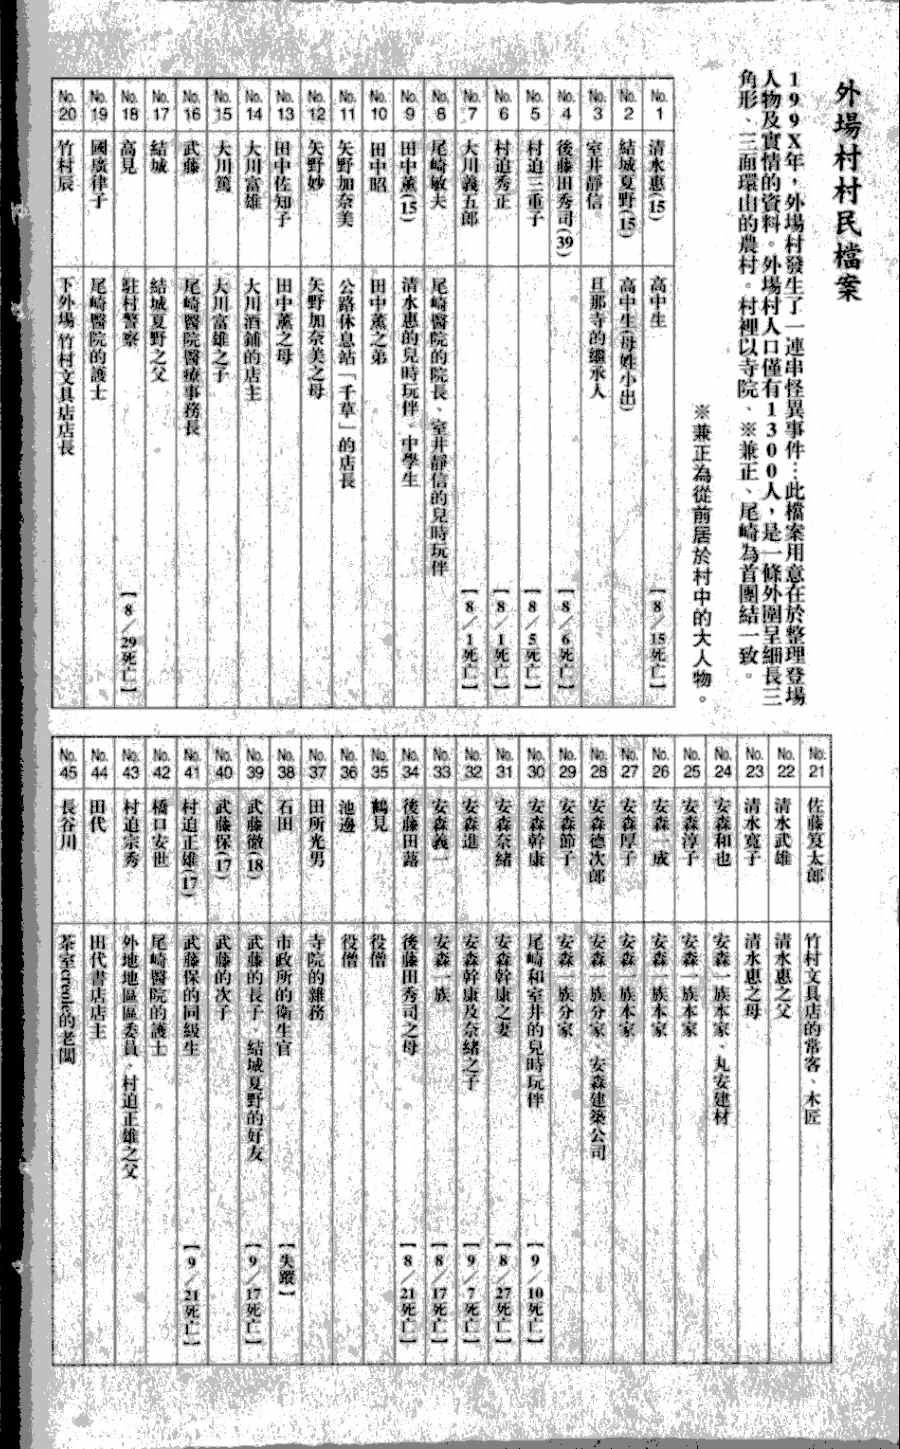 外場村村民檔案
199X年，外場村發生了一連串怪異事件…此檔案用意在於整理登場
人物及實情的資料。外場村人口僅有1300人，是一條外圍呈細長三
角形、三面環山的農村。村裡以寺院、※兼正、尾崎為首團結一致。
※兼正為從前居於村中的大人物。
No.1 清水惠(15) 高中生 【8／15死亡】
No.2 結城夏野(15) 高中生(母姓小出)
No.3 室井靜信 旦那寺的繼承人
No.4 後藤田秀司(39) 【8／6死亡】
No.5 村迫三重子 【8／5死亡】
No.6 村迫秀正 【8／1死亡】
No.7 大川義五郎 【8／1死亡】
No.8 尾崎敏夫 尾崎醫院的院長、室井靜信的兒時玩伴
No.9 田中薰(15) 清水惠的兒時玩伴、中學生
No.10 田中昭 田中薰之弟
No.11 矢野加奈美 公路休息站「千草」的店長
No.12 矢野妙 矢野加奈美之母
No.13 田中佐知子 田中薰之母
No.14 大川富雄 大川酒鋪的店主
No.15 大川篤 大川富雄之子
No.16 武藤 尾崎醫院醫療事務長
No.17 結城 結城夏野之父
No.18 高見 駐村警察 【8／29死亡】
No.19 國廣律子 尾崎醫院的護士
No.20 竹村辰 下外場 竹村文具店店長
No.21 佐藤笈太郎 竹村文具店的常客、木匠
No.22 清水武雄 清水惠之父
No.23 清水寬子 清水惠之母
No.24 安森和也 安森一族本家、丸安建材
No.25 安森淳子 安森一族本家
No.26 安森一成 安森一族本家
No.27 安森厚子 安森一族本家
No.28 安森德次郎 安森一族分家、安森建築公司
No.29 安森節子 安森一族分家
No.30 安森幹康 尾崎和室井的兒時玩伴 【9／10死亡】
No.31 安森奈緒 安森幹康之妻 【8／27死亡】
No.32 安森進 安森幹康及奈緒之子 【9／7死亡】
No.33 安森義一 安森一族 【8／17死亡】
No.34 後藤田蕗 後藤田秀司之母 【8／21死亡】
No.35 鶴見 役僧
No.36 池邊 役僧
No.37 田所光男 寺院的雜務
No.38 石田 市政所的衛生官 【失蹤】
No.39 武藤徹(18) 武藤的長子、結城夏野的好友 【9／17死亡】
No.40 武藤保(17) 武藤的次子
No.41 村迫正雄(17) 武藤保的同級生 【9／21死亡】
No.42 橋口安世 尾崎醫院的護士
No.43 村迫宗秀 外場地區區委員、村迫正雄之父
No.44 田代 田代書店店主
No.45 長谷川 茶室creole的老闆